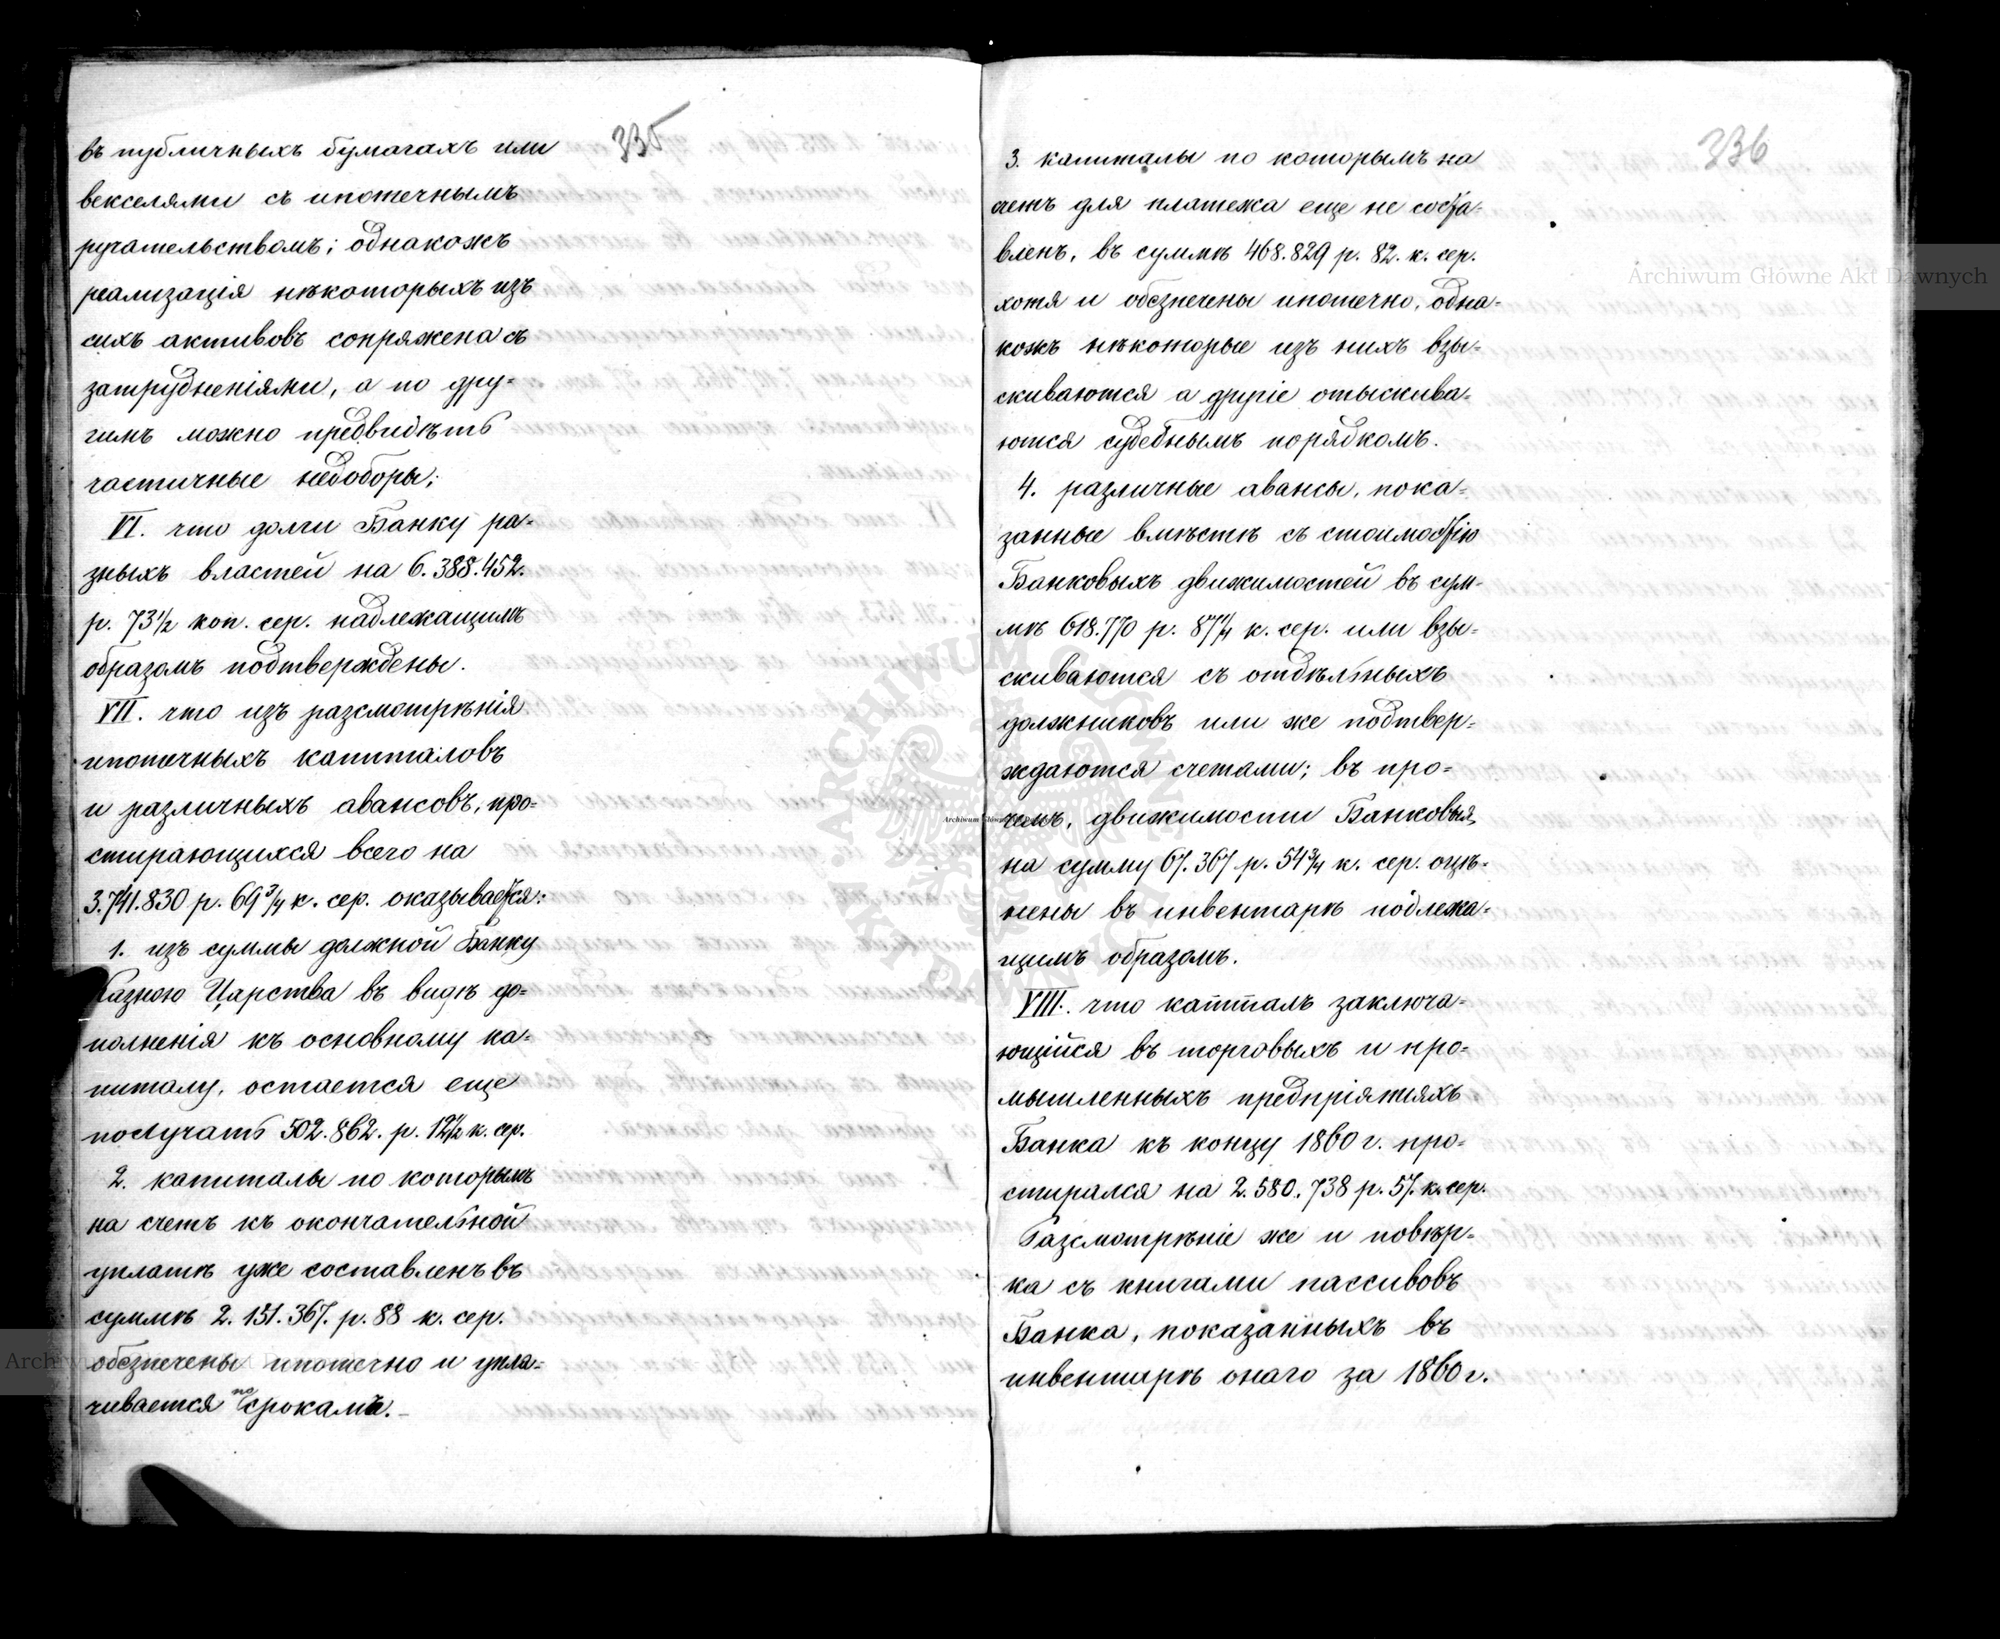 335
въ публичныхъ бумагахъ или
векселями съ ипотечнымъ
ручательствомъ; однакожъ
реализація нѣкоторыхъ изъ
сихъ активовъ сопряжена съ
затрудненіями, а по дру-
гимъ можно предвидѣть
частичные недоборы;
VI. что долги Банку ра-
зныхъ властей на 6.388.452.
р. 73 1/2 коп. сер. надлежащимъ
образомъ подтверждены.
VII. что изъ разсмотрѣнія
ипотечныхъ капиталовъ
и различныхъ авансовъ, про-
стирающихся всего на
3.741.830 р. 69 3/4 к. сер. оказывается:
1. изъ суммы должной Банку
Казною Царства въ видѣ до-
полненія къ основному ка-
питалу, остается еще
получать 502.862. р. 12 1/2 к. сер.
2. капиталы по которымъ
на счетъ къ окончательной
уплатѣ уже составленъ въ
суммѣ 2.151.367. р. 88 к. сер.
обезпечены ипотечно и упла-
чивается по срокамъ.
336
3. капиталы по которымъ на
счетъ для платежа еще не соста-
вленъ, въ суммѣ 468.829 р. 82. к. сер.
хотя и обезпечены ипотечно, одна-
кожъ нѣкоторые изъ нихъ взы-
скиваются а другіе отыскива-
ются судебнымъ порядкомъ.
4. различные авансы, пока-
занные вмѣстѣ съ стоимостію
Банковыхъ движимостей въ сум-
мѣ 618.770 р. 87 1/4 к. сер. или взы-
скиваются съ отдѣльныхъ
должниковъ или же подтвер-
ждаются счетами; въ про-
чемъ, движимости Банковыя,
на сумму 67.367 р. 54 3/4 к. сер. оцѣ-
нены въ инвентарѣ подлежа-
щимъ образомъ.
VIII. что капиталъ заключа-
ющійся въ торговыхъ и про-
мышленныхъ предпріятіяхъ
Банка къ концу 1860 г. про-
стирался на 2.580.738 р. 57. к. сер.
Разсмотрѣніе же и повѣр-
ка съ книгами пассивовъ
Банка, показанныхъ въ
инвентарѣ онаго за 1860 г.
Archiwum Główne Akt Dawnych